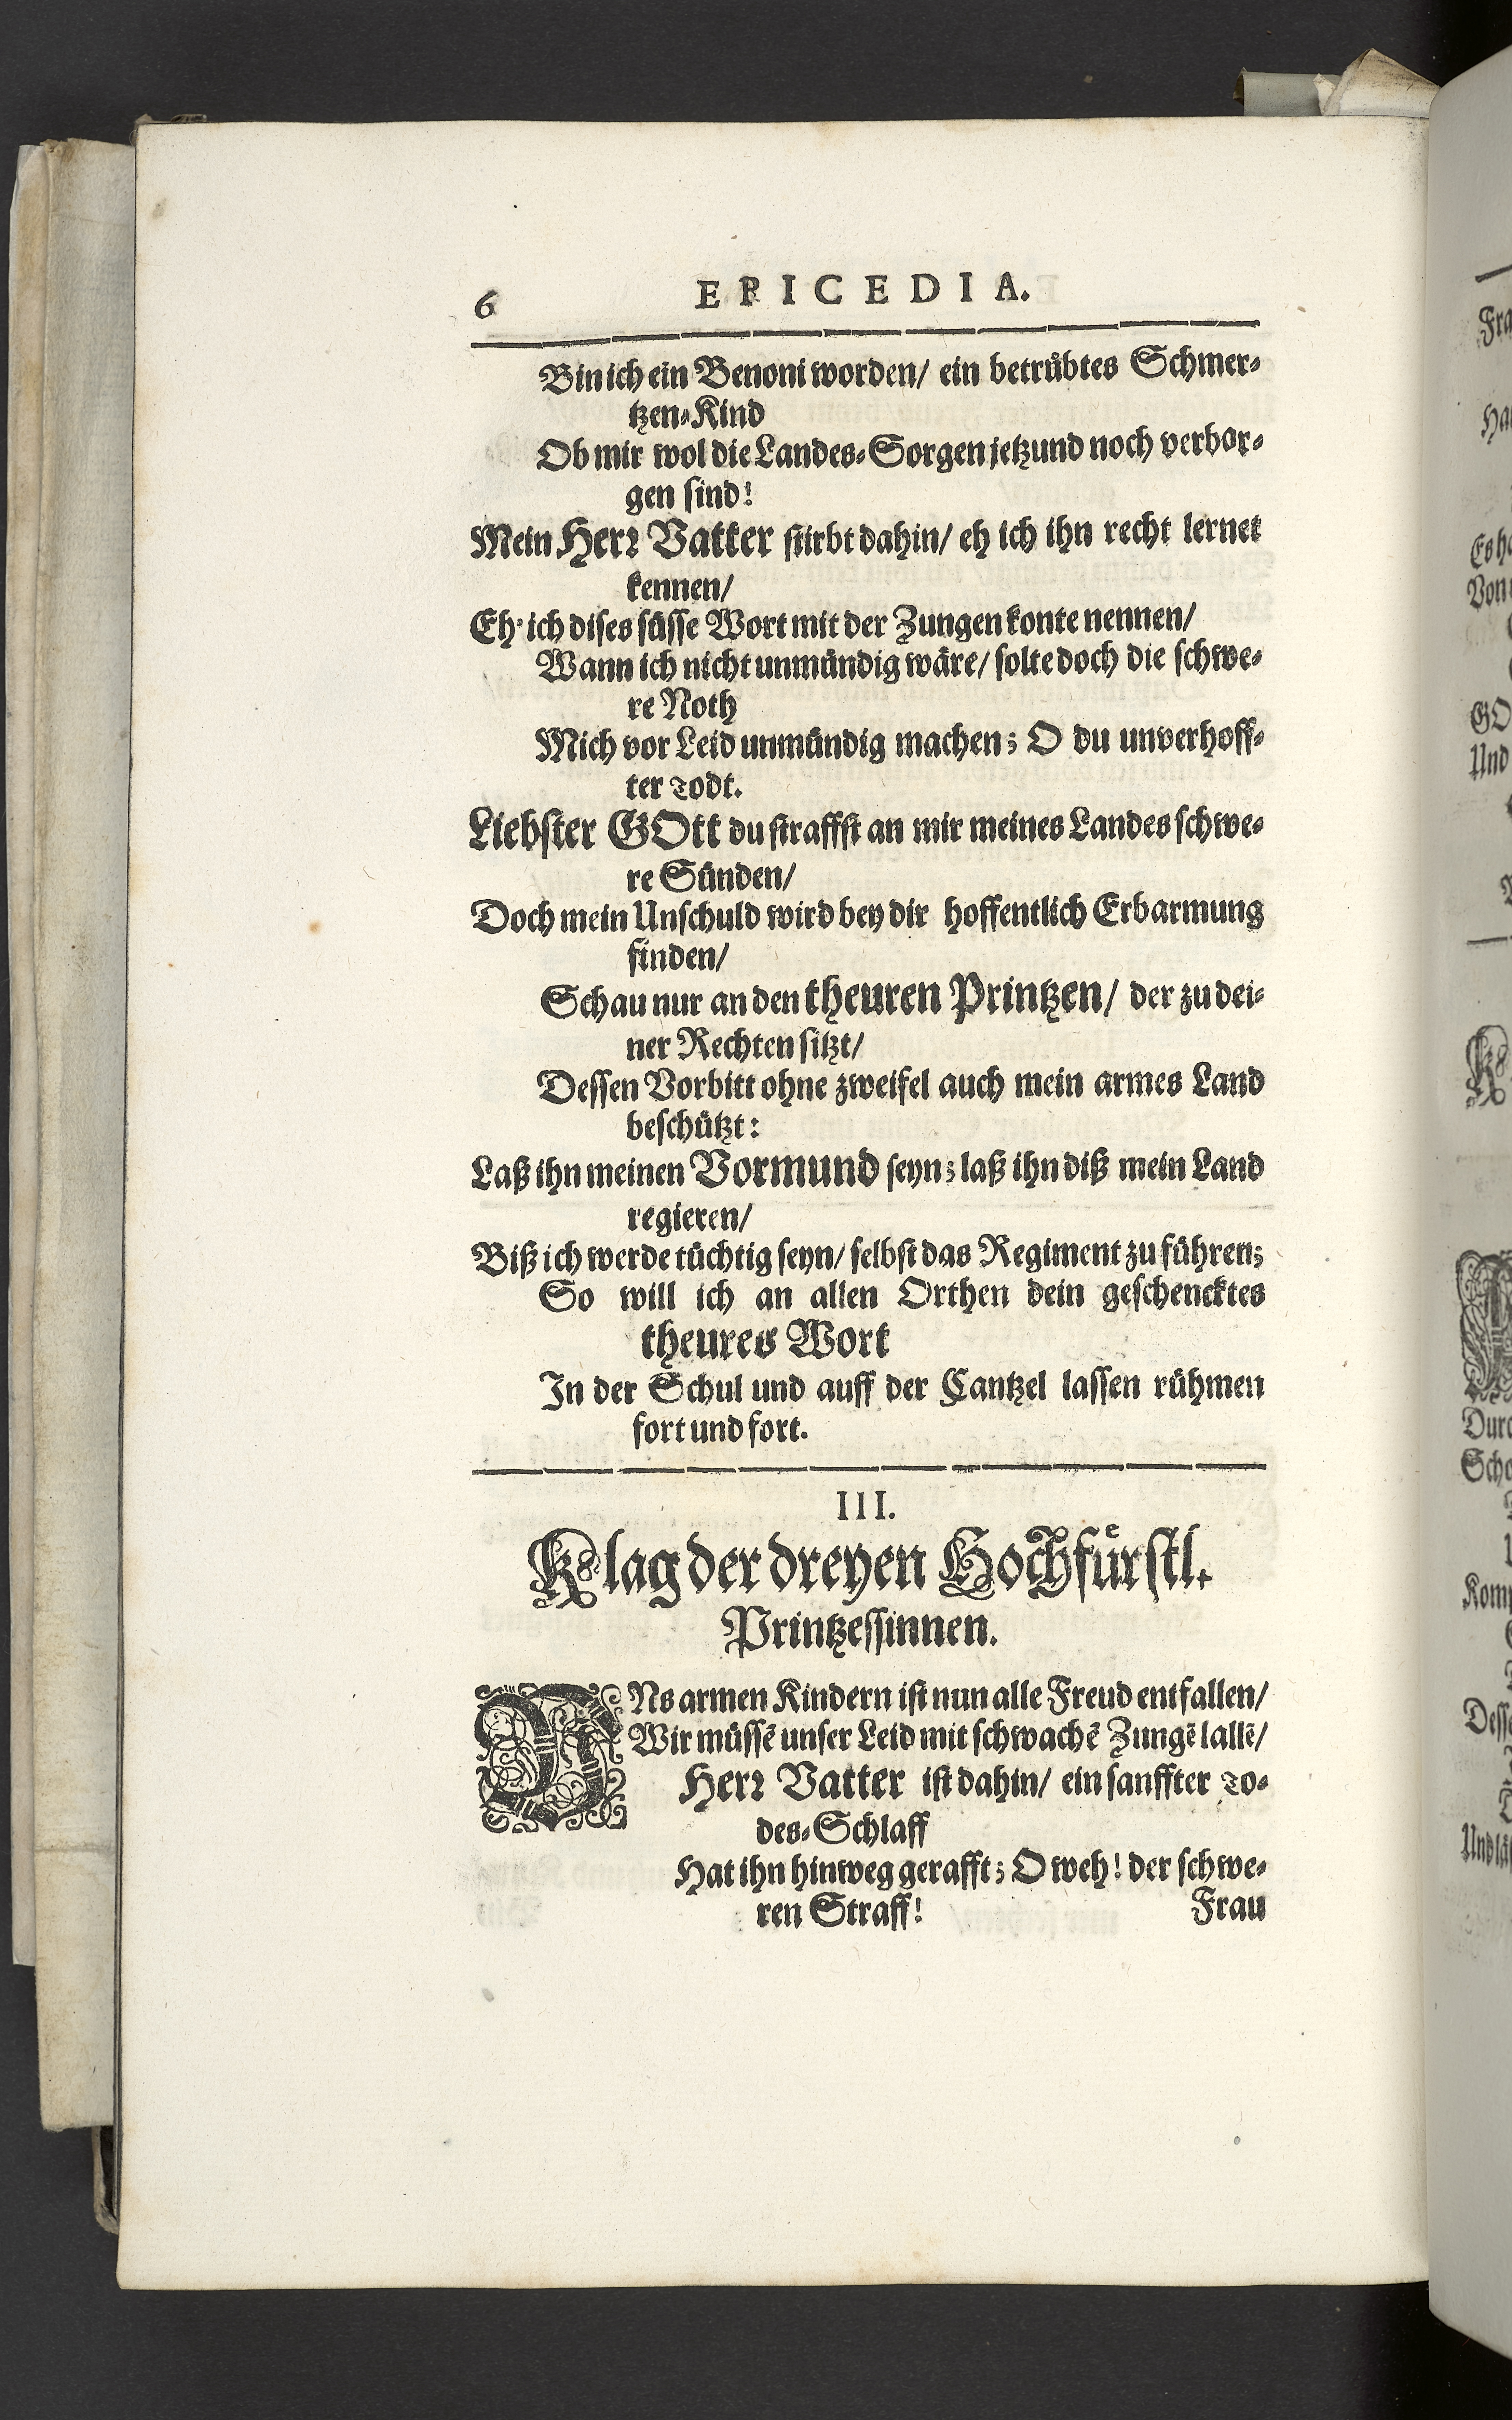 6 EPICEDIA.
Bin ich ein Benoni worden/ ein betrübtes Schmer-
tzen-Kind
Ob mir wol die Landes-Sorgen jetzund noch verbor-
gen sind!
Mein Herr Vatter stirbt dahin/ eh ich ihn recht lernet
kennen/
Eh' ich dises süsse Wort mit der Zungen konte nennen/
Wann ich nicht unmündig wäre/ solte doch die schwe-
re Noth
Mich vor Leid unmündig machen; O du unverhoff-
ter Todt.
Liebster GOtt du straffst an mir meines Landes schwe-
re Sünden/
Doch mein Unschuld wird bey dir hoffentlich Erbarmung
finden/
Schau nur an den theuren Printzen/ der zu dei-
ner Rechten sitzt/
Dessen Vorbitt ohne zweifel auch mein armes Land
beschützt:
Laß ihn meinen Vormund seyn; laß ihn diß mein Land
regieren/
Biß ich werde tüchtig seyn/ selbst das Regiment zu führen;
So will ich an allen Orthen dein geschencktes
theures Wort
In der Schul und auff der Cantzel lassen rühmen
fort und fort.
III.
Klag der dreyen Hochfürstl.
Printzessinnen.
UNs armen Kindern ist nun alle Freud entfallen/
Wir müssē unser Leid mit schwachē Zungē lallē/
Herr Vatter ist dahin/ ein sanffter To-
des-Schlaff
Hat ihn hinweg gerafft; O weh! der schwe-
ren Straff!
Frau